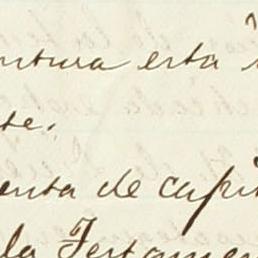 ntura esta
te.
enta de capi
la Testamen